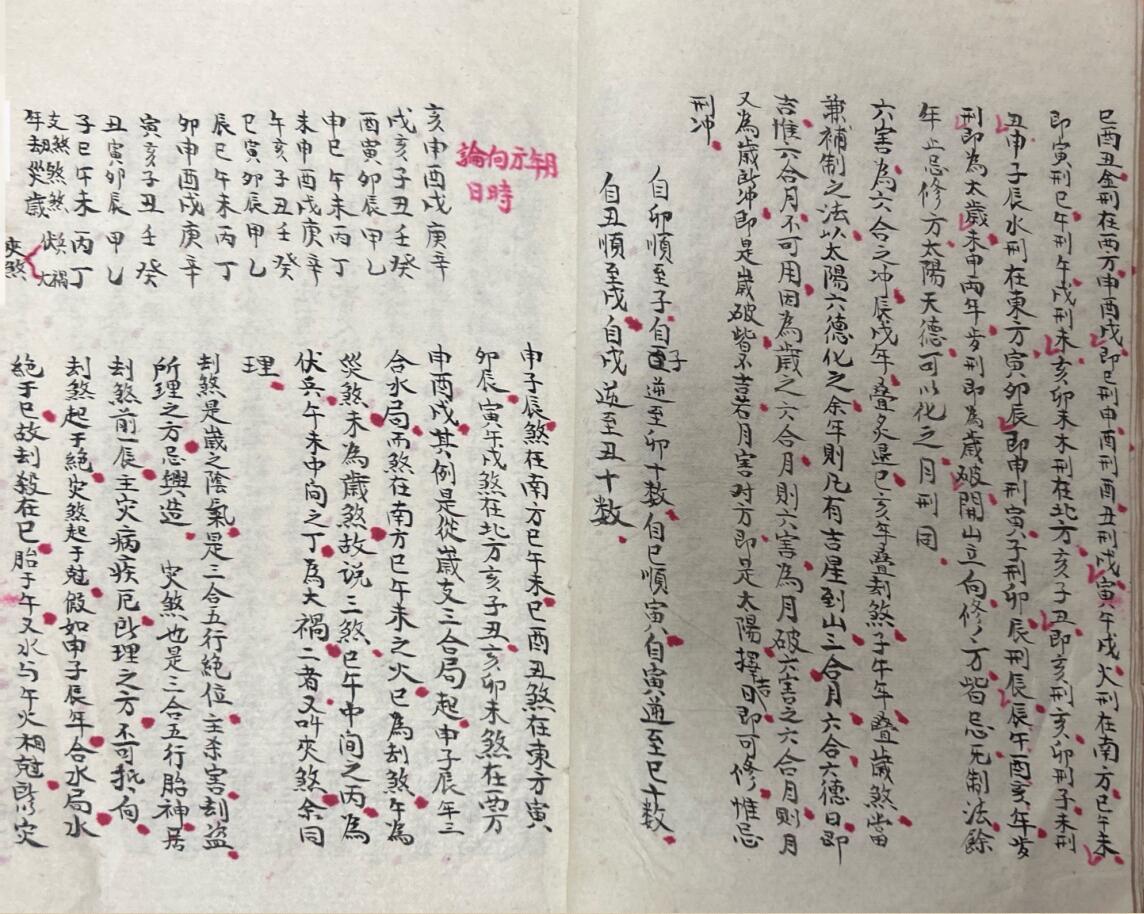 巳酉丑金刑在西方申酉戌即巳刑申酉刑酉丑刑戌寅午戌火刑在南方巳午未
即寅刑巳午刑午戌刑未亥卯未木刑在北方亥子丑即亥刑亥卯刑子未刑
丑申子辰水刑在東方寅卯辰即申刑寅子刑卯辰刑辰辰午酉亥年岁
刑即為太歲未申两年岁刑即為歲破開山立向修方皆忌无制法餘
年止忌修方太陽天德可以化之月刑同
六害為六合之冲辰戌年叠炙退巳亥年叠刼煞子午年叠歲煞當
兼補制之法以太陽六德化之余年則凡有吉星到山三合月六合六德日即
吉惟六合月不可用因為歲之六合月則六害為月破六害之六合月則月
又為歲所冲即是歲破皆不吉若月害对方即是太陽擇吉日即可修惟忌
刑冲
自卯順至子自子逆至卯十数自巳順寅自寅逆至巳十数
自丑順至戌自戌逆至丑十数
論向示年月
日時
亥申酉戌庚辛
戌亥子丑壬癸
酉寅卯辰甲乙
申巳午未丙丁
未申酉戌庚辛
午亥子丑壬癸
巳寅卯辰甲乙
辰巳午未丙丁
卯申酉戌庚辛
寅亥子丑壬癸
丑寅卯辰甲乙
子巳午未丙丁
支煞煞煞
年刼災歲
大禍
夾煞
申子辰煞在南方巳午未巳酉丑煞在東方寅
卯辰寅午戌煞在北方亥子丑亥卯未煞在西方
申酉戌其例是從歲支三合局起申子辰年三
合水局而煞在南方巳午未之火巳為刼煞午為
災煞未為歲煞故说三煞巳午中间之丙為
伏兵午未中向之丁為大禍二者又叫夾煞余同
理
刼煞是歲之陰氣是三合五行絶位主杀害刼盗
所理之方忌興造 灾煞也是三合五行胎神居
刼煞前一辰主灾病疾厄所理之方不可抵向
刼煞起于絶灾煞起于尅假如申子辰年合水局水
絶于巳故刼殺在巳胎于午又水与午火相尅所灾